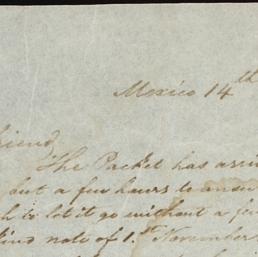 Mexico 14th
friend,
The Packet has arri
but a few hours to answ
h to let it go without a few
kind note of 1.st November